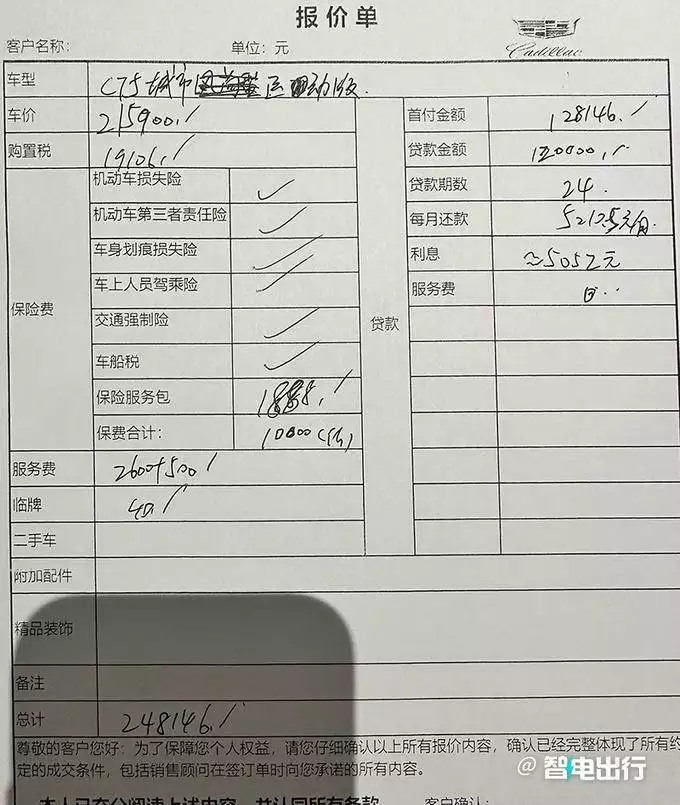 报价单
Cadillac
客户名称： 单位：元
车型 CT5 城市 运动版
车价 215900./
购置税 19106./
保险费
机动车损失险 ✓
机动车第三者责任险 ✓
车身划痕损失险 ✓
车上人员驾乘险 ✓
交通强制险 ✓
车船税 ✓
保险服务包 1888./
保费合计： 10000(估)
服务费 2600+500/
临牌 40./
二手车
附加配件
精品装饰
备注
总计 248146./
贷款
首付金额 128146./
贷款金额 120000./
贷款期数 24.
每月还款 5212.5元/月
利息 ≈5052元
服务费
尊敬的客户您好：为了保障您个人权益，请您仔细确认以上所有报价内容，确认已经完整体现了所有约
定的成交条件，包括销售顾问在签订单时向您承诺的所有内容。
本人已充分阅读上述内容，并认同所有条款 客户确认：
@智电出行